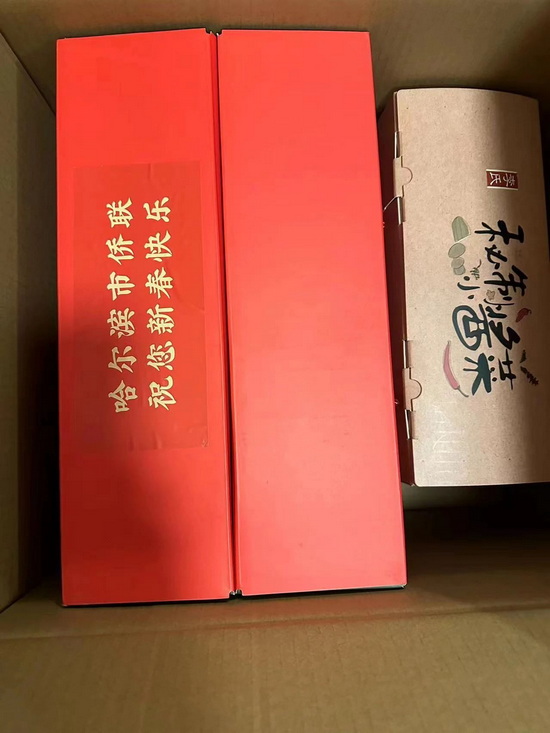 哈尔滨市侨联
祝您新春快乐
李氏
秘制
小酱菜